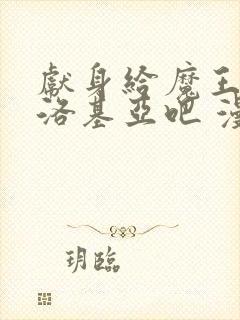 獻身給魔王
洛基亞吧 漫
玥臨